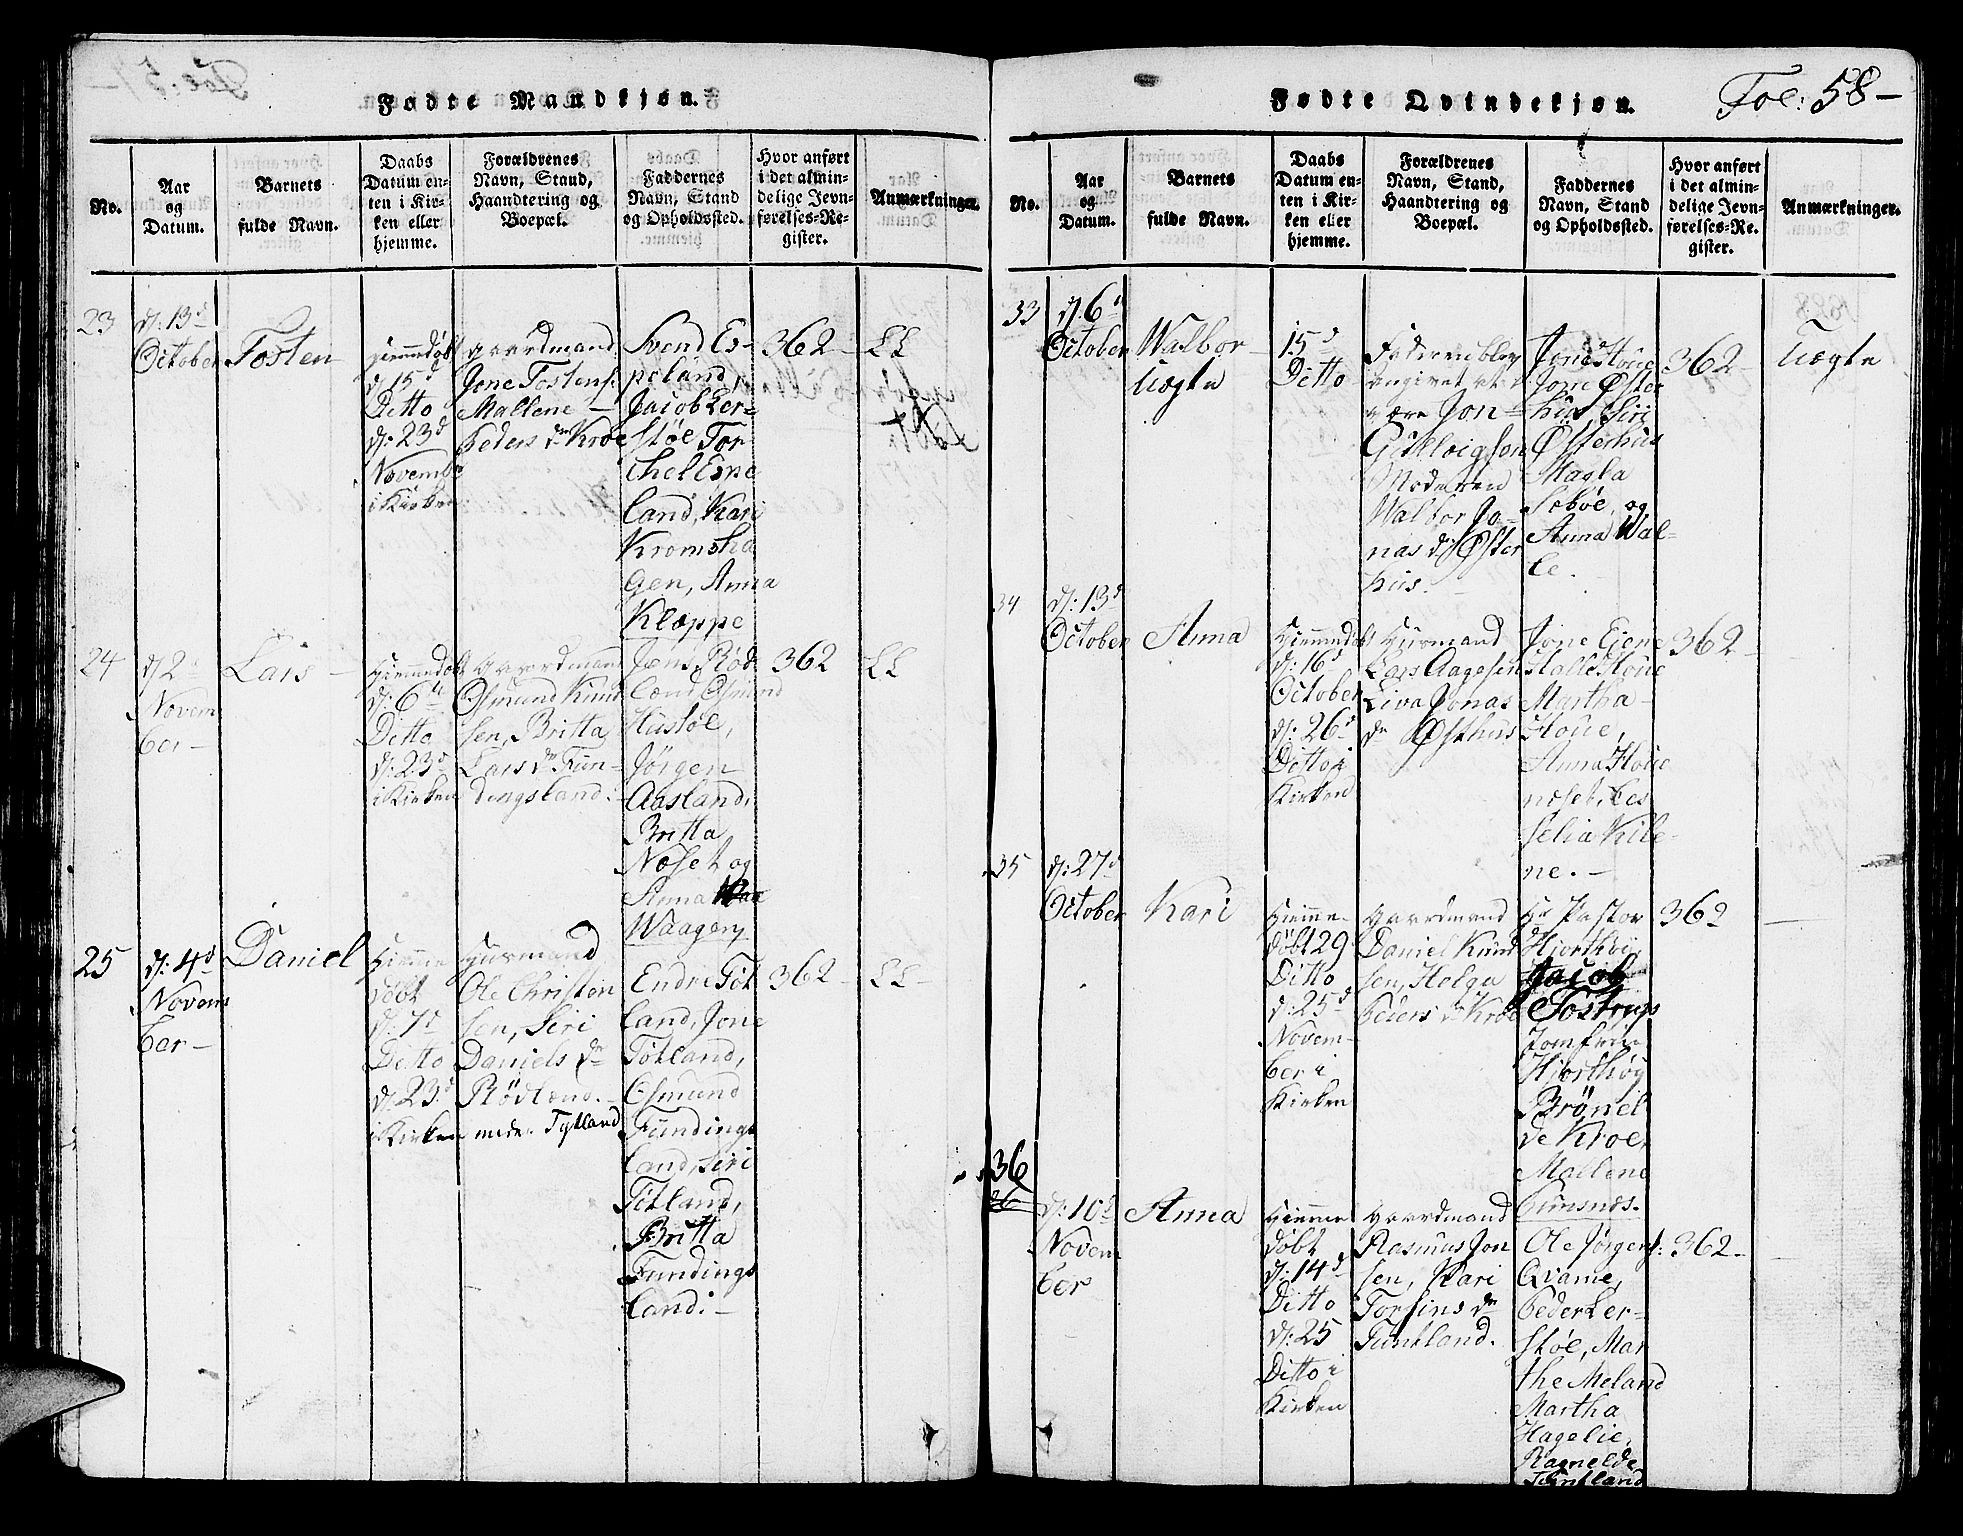 Fødte Mandkjøn.
No.
Aar
og
Datum.
Barnets
fulde Navn.
Daabs
Datum en-
ten i Kir-
ken eller
hjemme.
Forældrenes
Navn, Stand,
Haandtering og
Boepæl.
Faddernes
Navn, Stand
og Opholdssted.
Hvor anført
i det almin-
delige Jevn-
førelses-Re-
gister.
Anmærkninger.
23
d: 13d
October
Tosten
hjemmedøbt
d 15d
Ditto
d: 23d
Novembr
i Kirken
Gaardmand
Jone Tostens:
Mallene
Peders dr Kroe
Svend Es-
peland,
Jacob Ler-
støe Tor
chel Espe
land, Kari
Kromsha
gen, Anna
Kleppe
362
LL
24
d 2
Novem
ber
Lars
Hjemmedøbt
d: 6te
Ditto
d: 23d
i Kirken
Gaardmand
Osmund Knud
sen, Britta
Lars dr Fun-
dingsland.
Jens Rød
land Osmund
Hustøe,
Jørgen
Aasland,
Britta
Næset og
Anna
Waagen
362
LL
25
d: 4d
Novem
ber
Daniel
Hjemme
døbt
d: 7d
Ditto
d: 23d
i Kirken
Huusmand
Ole Christen
sen, Siri
Daniels dr
Rødland.
nedr. Tytland
Endre Tøt
land, Jone
Tøtland,
Osmund
Fundings
land, Siri
Tøtland,
Britta
Fundings
land:
362
LL
Fødte Qvindekjøn.
Fol: 58
No.
Aar
og
Datum.
Barnets
fulde Navn.
Daabs
Datum en-
ten i Kir-
ken eller
hjemme.
Forældrenes
Navn, Stand,
Haandtering og
Boepæl.
Faddernes
Navn, Stand
og Opholdssted.
Hvor anført
i det almin-
delige Jevn-
førelses-Re-
gister.
Anmærkninger.
33
d. 6te
October
Walbor
Uægte
15d
Ditto
Faderen blev
angivet at
være Jon
Gunleigson
Moderen
Walbor Jo-
nas dr Øster
hus.
Jone Houe
Jone Øster
hus Siri
Østerhus
Magla
Sebøe, og
Anna Wal-
le.
362
Uægte
34
d: 13d
October
Anna
Hjemmedøbt
d: 16d
October
d: 26d
Ditto i
Kirken
Huusmand
Lars Aagesen
Liva Jonas
dr Østhus
Jone Eiene
Halle Houe
Martha
Houe,
Anna Houe
næset, Ces
selia Kile-
ne.
362
35
d: 27d
October
Kari
Hjemme-
døbt 29
Ditto
d: 25d
Novem-
ber i
Kirken
Gaardmand
Daniel Knud
sen, Helga
Peders dr Kroe
Hr Pastor
Hjorthøi
Jacob
Tostrup
Jomfrue
Hjorthøg
Brønel
de Kroe,
Mallene
362
36
d: 10d
Novem
ber
Anna
Hjemme
døbt
d: 14d
Ditto
d: 25
Ditto i
Kirken
Gaardmand
Rasmus Jon
sen, Kari
Torfins dr
Tuntland.
Ole Jørgens:
Qvame,
Peder Ler-
støe, Mar
the Meland
Martha
Hagelie,
Ragnelde
Tuntland
362